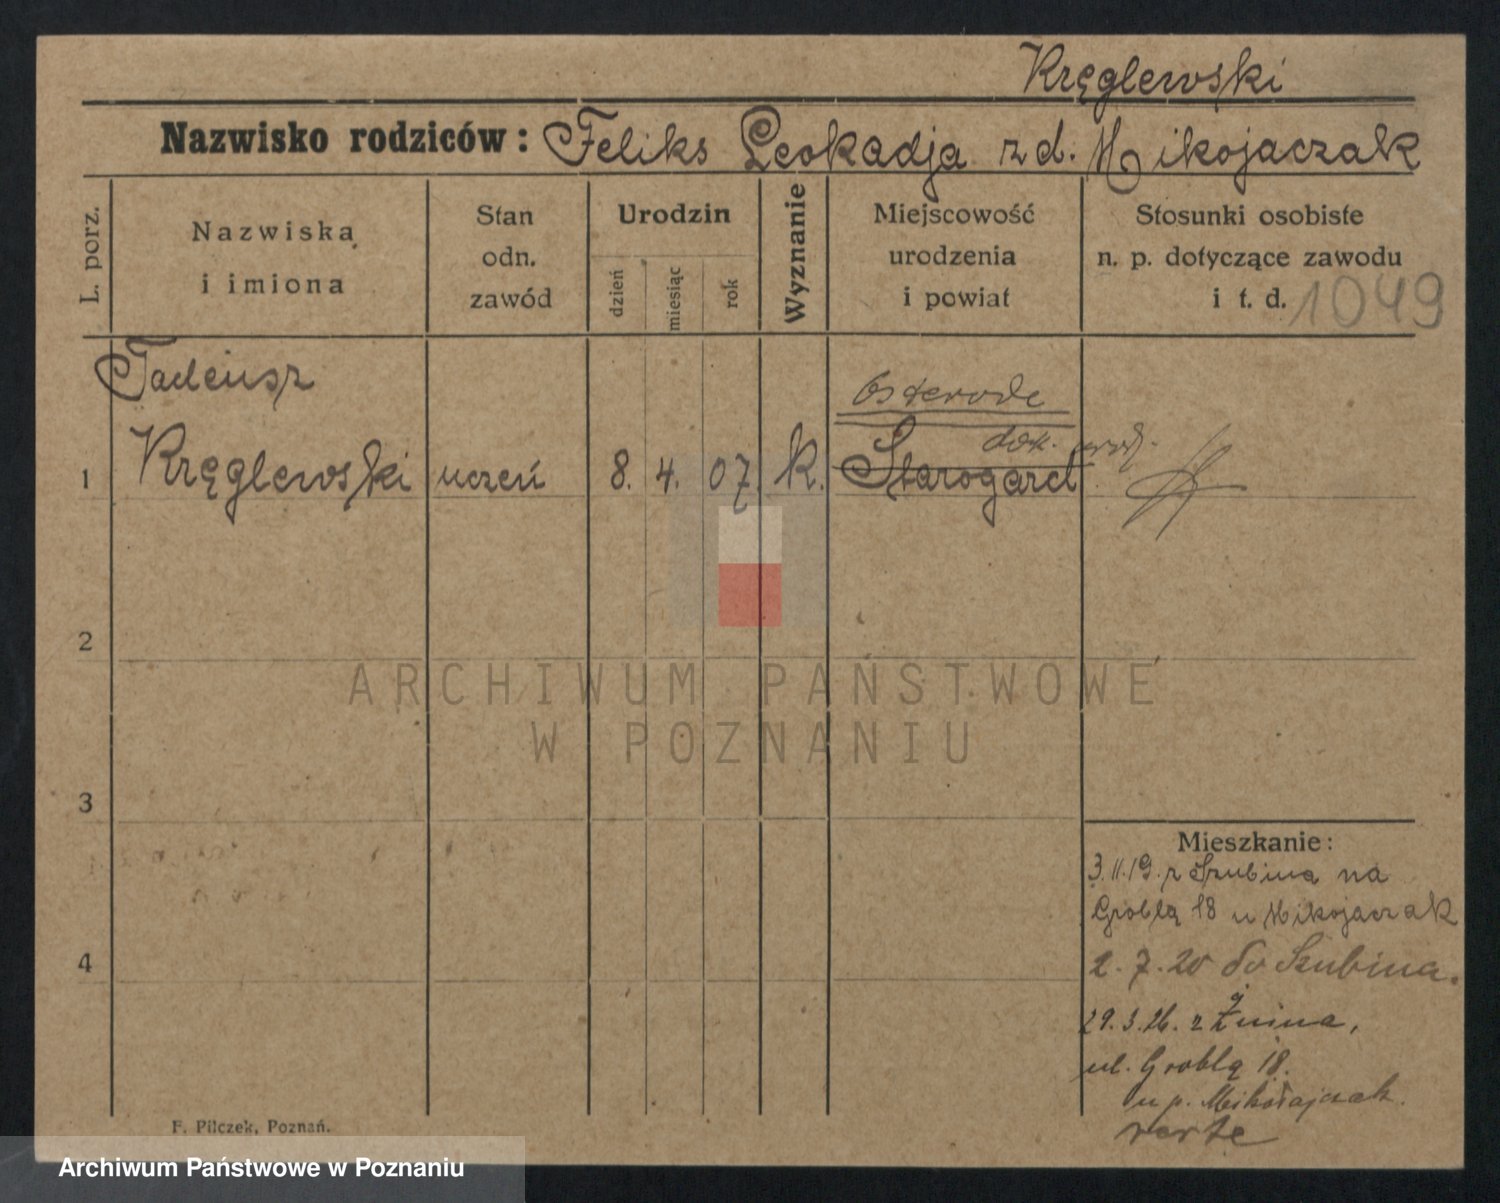 Kręglewski
Nazwisko rodziców: Feliks Leokadja z d. Mikojaczak
L. porz.
Nazwiska
i imiona
Stan
odn.
zawód
Urodzin
dzień
miesiąc
rok
Wyznanie
Miejscowość
urodzenia
i powiat
Stosunki osobiste
n. p. dotyczące zawodu
i t. d. 1049
Tadeusz
Osterode
dok. urodz.
1 Kręglewski uczeń 8. 4. 07 k. Starogard
2
ARCHIWUM PAŃSTWOWE
W POZNANIU
3
Mieszkanie:
3.11.19. z Szubina na
Groblą 18 u Mikojaczak
2.7.20 do Szubina.
4
29.3.26. z Żnina,
ul. Groblą 18.
u p. Mikołajczak.
verte
F. Pilczek, Poznań.
Archiwum Państwowe w Poznaniu